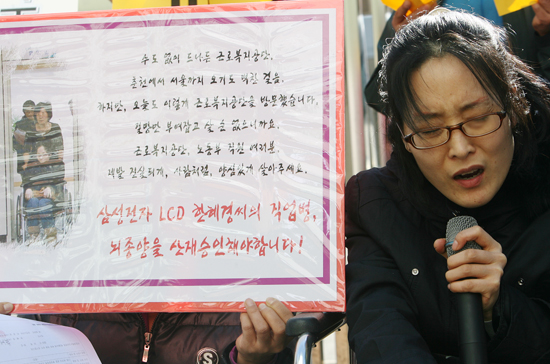 수도 없이 드나든 근로복지공단.
춘천에서 서울까지 오기도 힘든 걸음.
하지만, 오늘도 이렇게 근로복지공단을 방문했습니다.
절망만 부여잡고 살 순 없으니까요.
근로복지공단, 노동부 직원 여러분.
제발 진실되게, 사람처럼, 양심있게 살아주세요.
삼성전자 LCD 한혜경씨의 직업병,
뇌종양을 산재승인해야합니다!
S